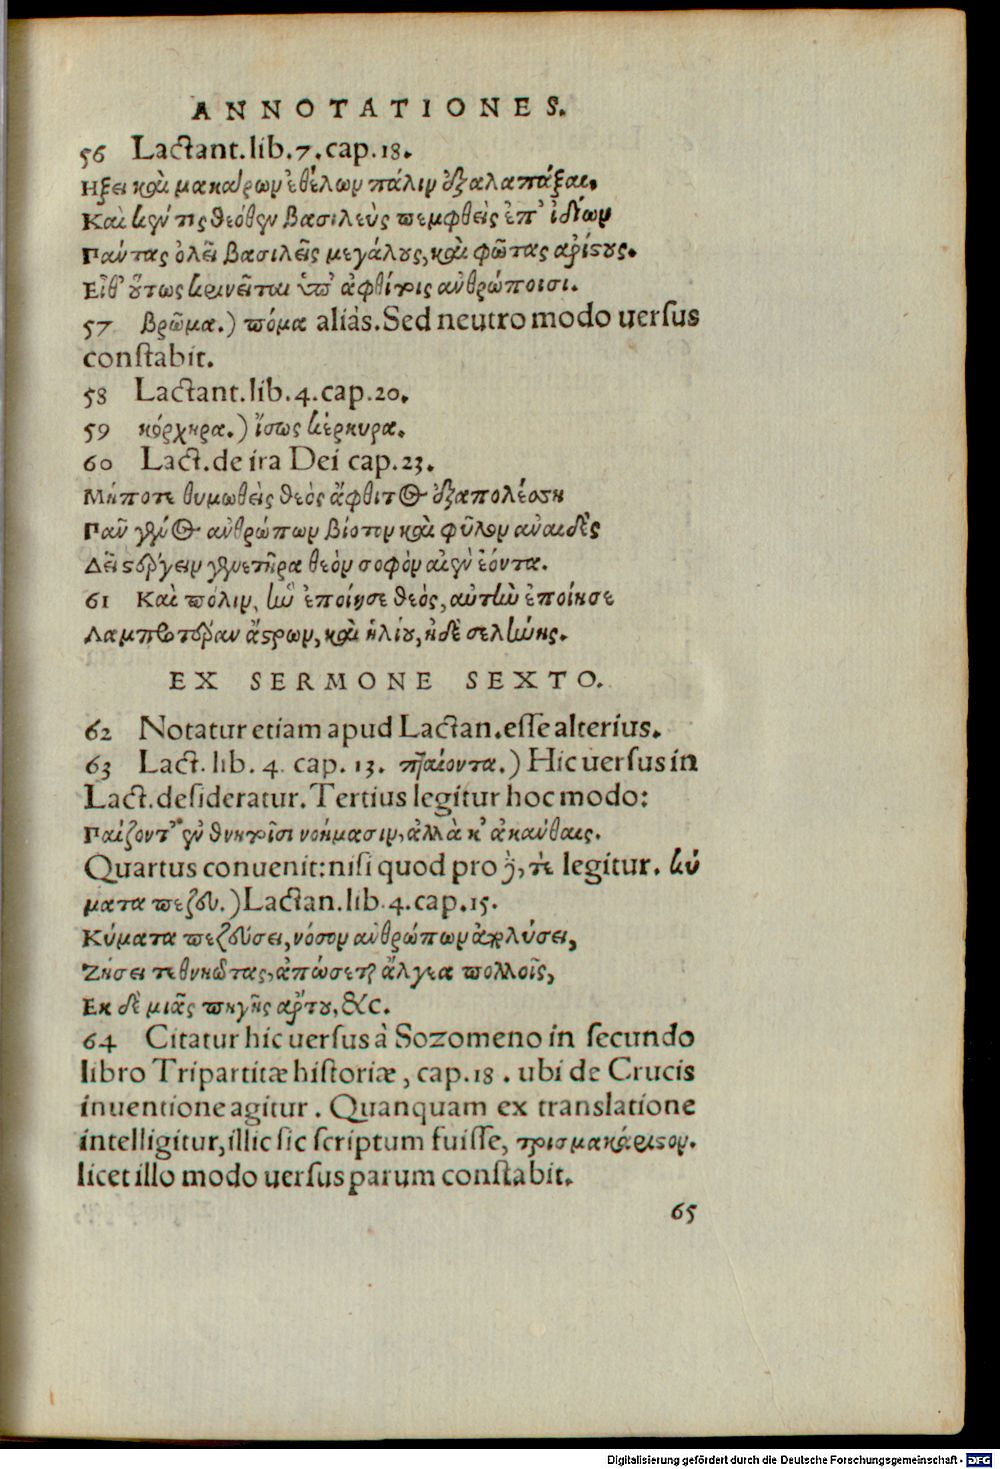 ANNOTATIONES.
56 Lactant. lib. 7. cap. 18.
Ηξει καὶ μακάρων ἐθέλων πάλιν ἐξαλαπάξαι.
Καὶ κέν τις θεόθεν βασιλεὺς πεμφθεὶς ἐπ' ἰδίων
Πάντας ὀλεῖ βασιλεῖς μεγάλους, καὶ φῶτας ἀρίστους.
Εἶθ' οὕτως κρινεῖται ὑπ' ἀφθίτοις ἀνθρώποισι.
57 βρῶμα.) πόμα aliàs. Sed neutro modo uersus
constabit.
58 Lactant. lib. 4. cap. 20.
59 κόρχηρα.) ἴσως κέρκυρα.
60 Lact. de ira Dei cap. 23.
Μήποτε θυμωθεὶς θεὸς ἄφθιτος ἐξαπολέσση
Παν γένος ἀνθρώπων βίοτον καὶ φῦλον ἀναιδὲς
Δεῖ στέργειν γενετῆρα θεὸν σοφὸν αἰὲν ἐόντα.
61 Καὶ πόλιν, ἣν ἐποίησε θεός, αὐτὴν ἐποίησε
Λαμπροτέραν ἄστρων, καὶ ἡλίου, ἠδὲ σελήνης.
EX SERMONE SEXTO.
62 Notatur etiam apud Lactan. esse alterius.
63 Lact. lib. 4. cap. 13. Hic uersus in
Lact. desideratur. Tertius legitur hoc modo:
Παίζοντ' ἐν θνητοῖσι νοήμασιν, ἀλλὰ κ' ἀκαύθαις.
Quartus conuenit: nisi quod pro δὲ, τὲ legitur. κύ
ματα πεζεύ.) Lactan. lib. 4. cap. 15.
Κύματα πεζεύσει, νόσον ἀνθρώπων ἀπολύσει,
Στήσει τεθνηῶτας, ἀπώσεται ἄλγεα πολλοῖς,
Εκ δὲ μιᾶς πηγῆς ἄρτου, &c.
64 Citatur hic uersus à Sozomeno in secundo
libro Tripartitæ historiæ, cap. 18. ubi de Crucis
inuentione agitur. Quanquam ex translatione
intelligitur, illic sic scriptum fuisse, τρισμακάριστον.
licet illo modo uersus parum constabit.
65
Digitalisierung gefördert durch die Deutsche Forschungsgemeinschaft - DFG